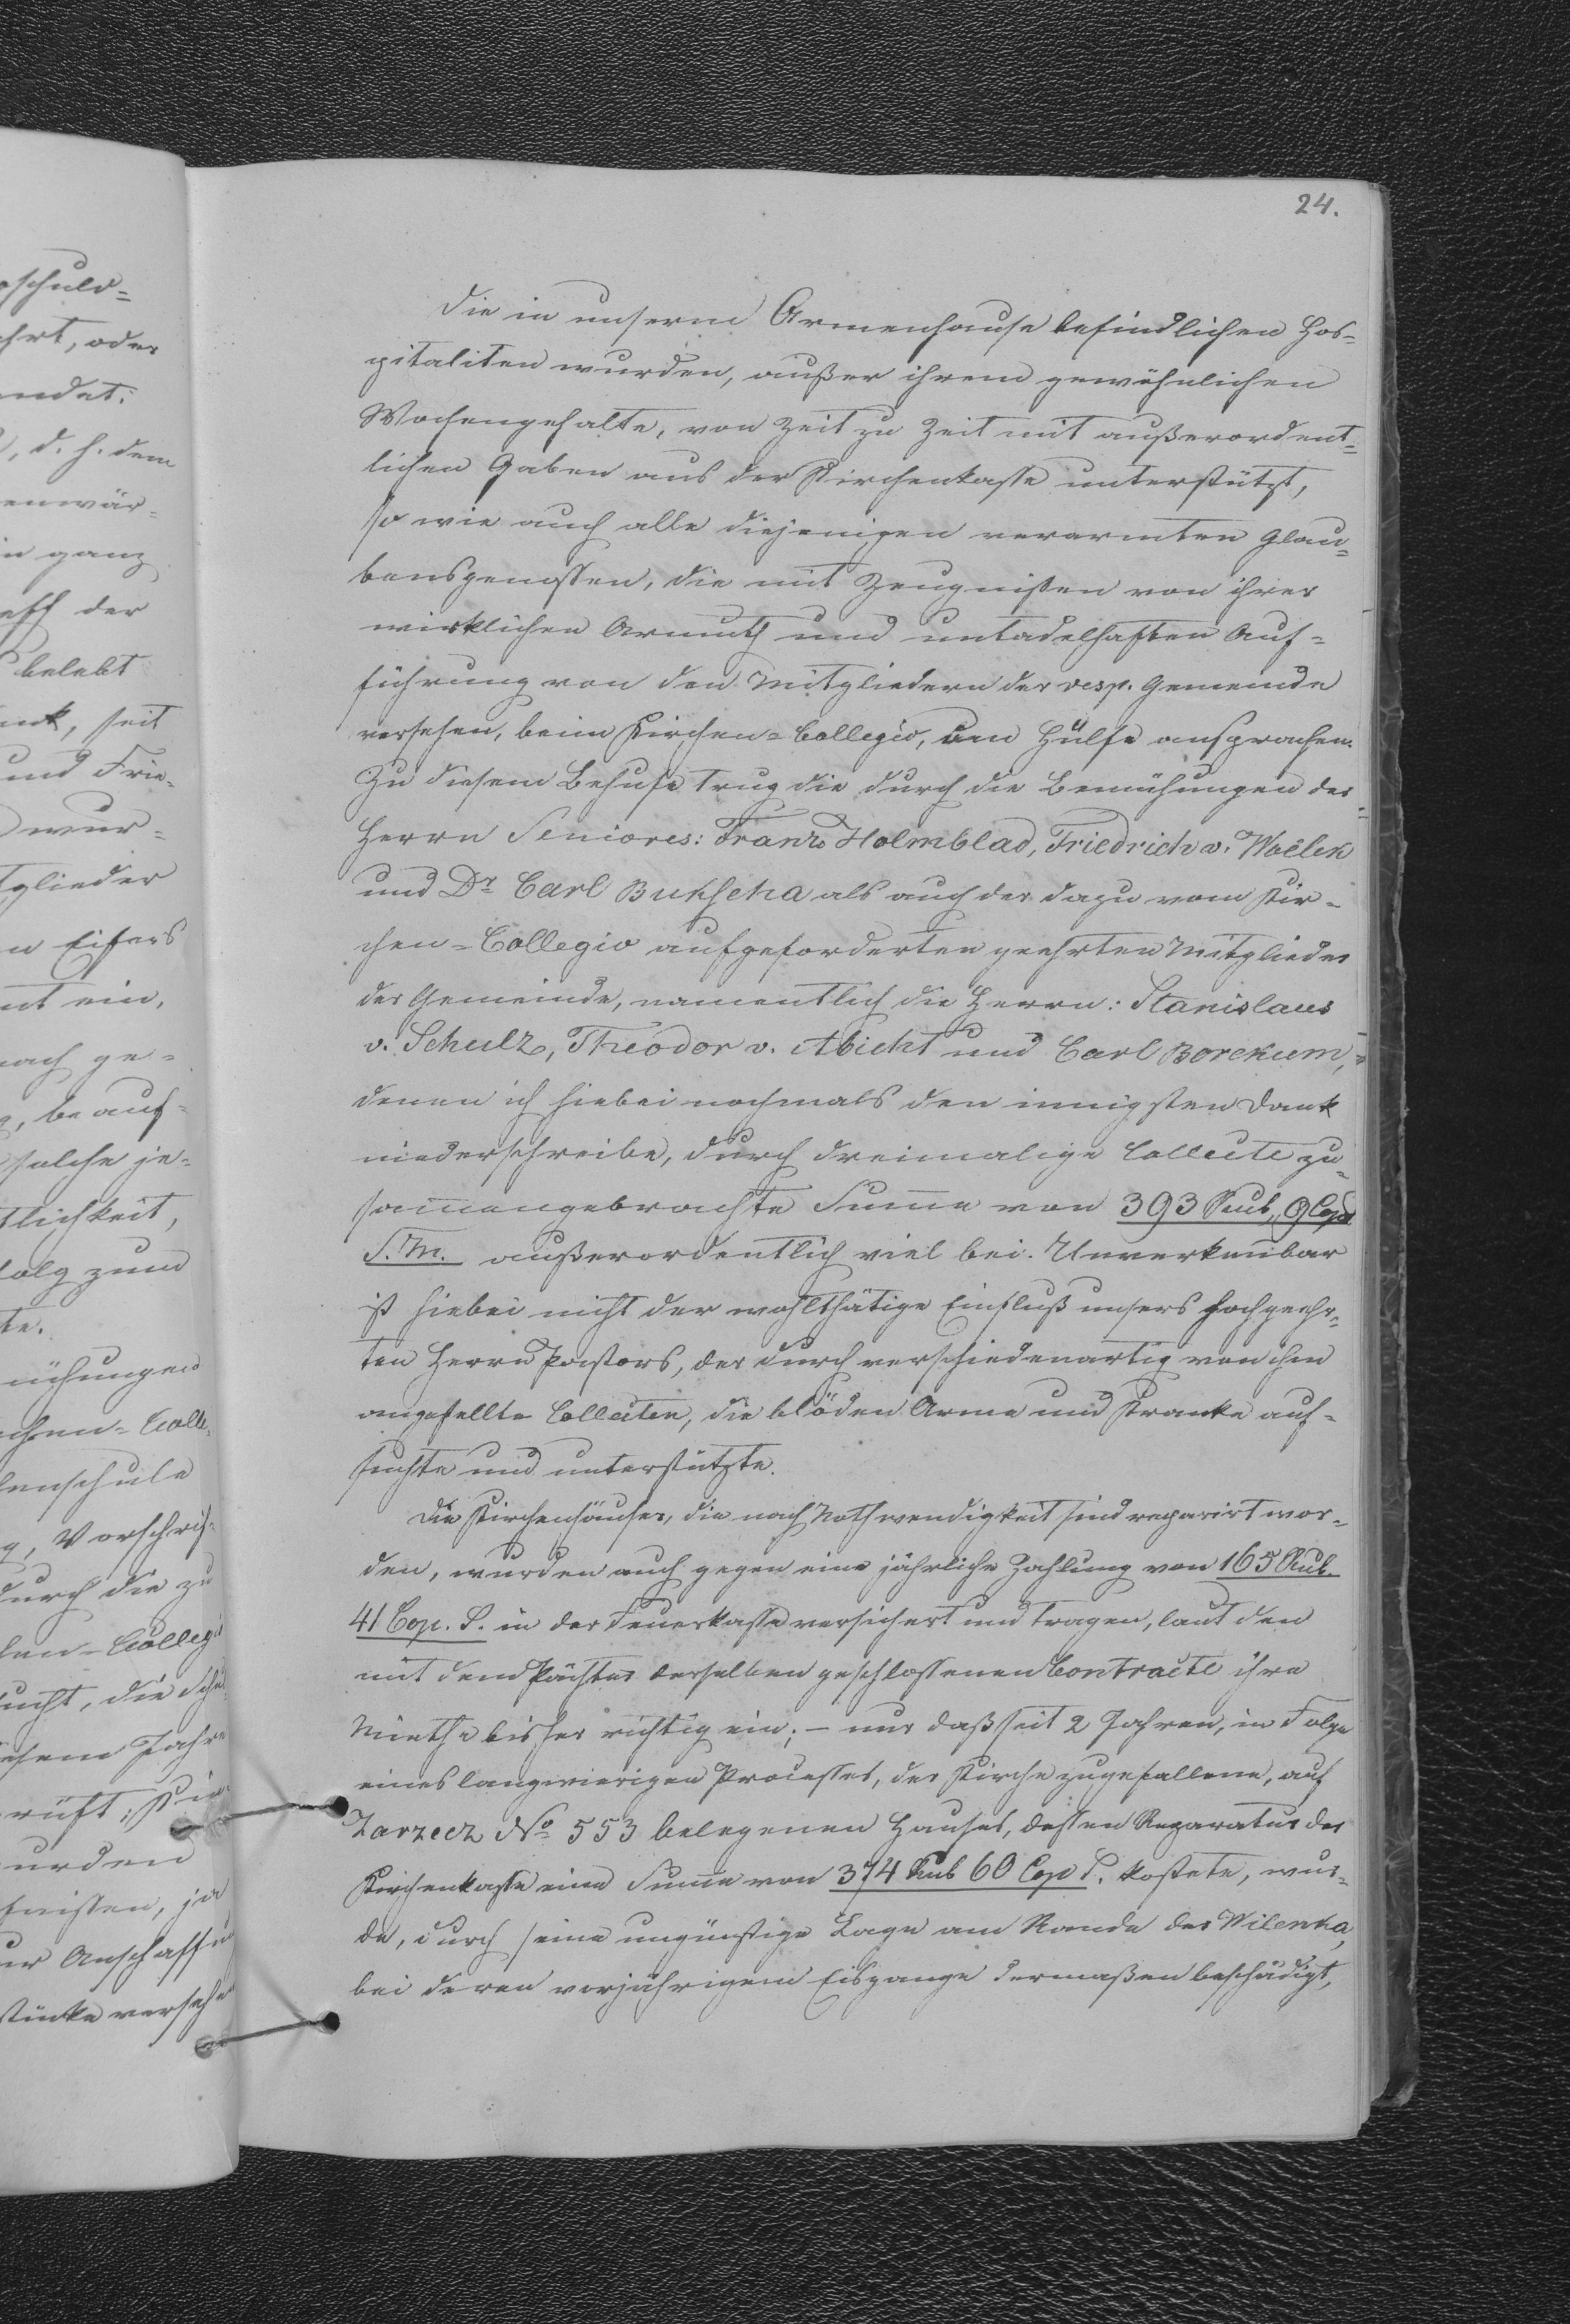 24.
Die in unserm Armenhause befindlichen Hos=
pitaliten wurden, außer ihrem gewöhnlichen
Wochengehalte, von Zeit zu Zeit mit außerordent=
lichen Gaben aus der Kirchenkasse unterstützt,
so wie auch alle diejenigen verarmten Glau=
bensgenossen, die mit Zeugnissen von ihrer
wirklichen Armuth und untadelhaften Auf=
führung von den Mitgliedern der resp. Gemeinde
versehen, beim Kirchen=Collegio, um Hülfe ansprachen.
Zu diesem Behufe trug die durch die Bemühungen der
Herrn Seniores: Franz Holmblad, Friedrich v. Woelck
und Dr Carl Bukscha als auch der dazu vom Kir=
chen=Collegio aufgeforderten geehrten Mitglieder
der Gemeinde, namentlich die Herrn: Stanislaus
v. Schulz, Theodor v. Abicht und Carl Borckum,
denen ich hiebei nochmals den innigsten Dank
niederschreibe, durch dreimalige Collecte zu=
sammengebrachte Summe von 393 Rub. 9 Cop
S. M. außerordentlich viel bei. Unverkennbar
ist hiebei nicht der wohlthätige Einfluß unsers hochgeehr=
ten Herrn Pastors, der durch verschiedenartig von ihm
angestellte Collecten, die blöden Arme und Kranke auf=
suchte und unterstützte.
Die Kirchenhäuser, die nach Nothwendigkeit sind reparirt wor=
den, wurden auch gegen eine jährliche Zahlung von 165 Rub.
41 Cop. S. in der Feuerkasse versichert und tragen, laut den
mit dem Pächter derselben geschlossenen Contracte ihre
Miethe bisher richtig ein; – nur daß seit 2 Jahren, in Folge
eines langwierigen Processes, der Kirche zugefallene, auf
Zarzecz No 553 belegenen Hauses, dessen Reparatur der
Kirchenkasse eine Summe von 374 Rub 60 Cop S. kostete, wur=
de, durch seine ungünstige Lage am Rande der Wilenka,
bei deren vorjährigem Eisgange dermaßen beschädigt,